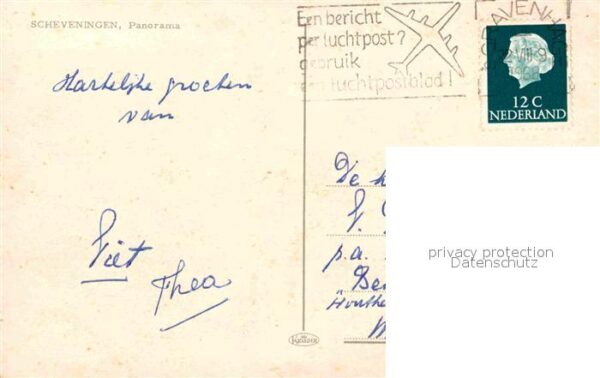 SCHEVENINGEN, Panorama
Een bericht
per luchtpost?
gebruik
een luchtpostblad!
12 C
NEDERLAND
Hartelijke groeten
van
Piet
Thea
De
p.a.
privacy protection
Datenschutz